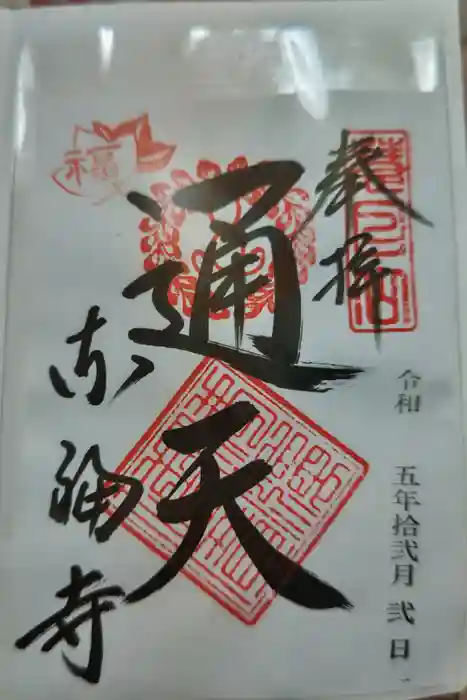 奉拝
令和 五年拾弐月 弐日
通天
東福寺
福